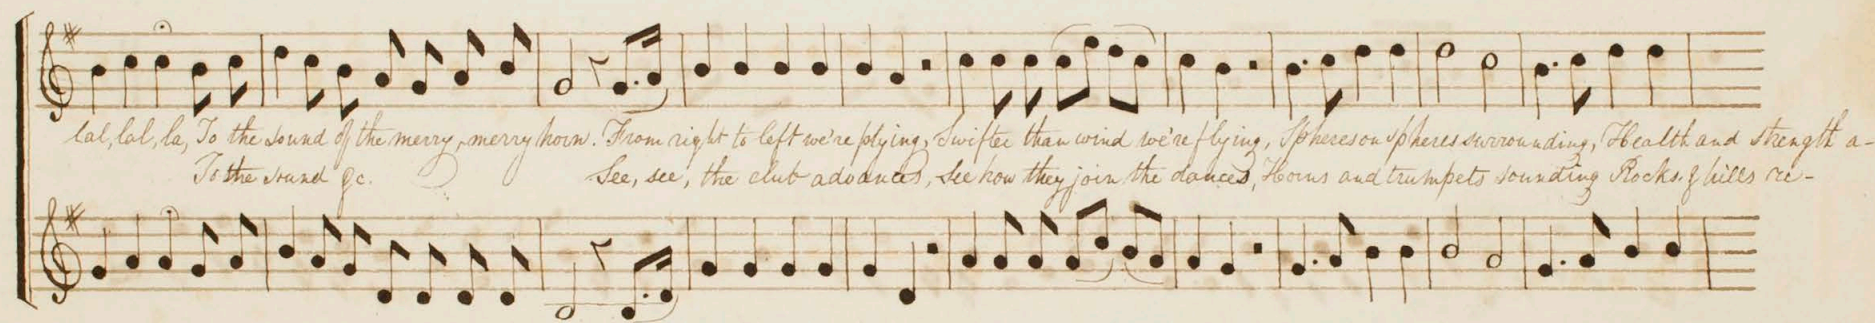 lal, lal, la, To the sound of the merry, merry horn. From right to left we're plying, Swifter than wind we're flying, Spheres on spheres surrounding, Health and strength a-
To the sound &c. See, see, the club advances, See how they join the dances, Horns and trumpets sounding Rocks & hills re-